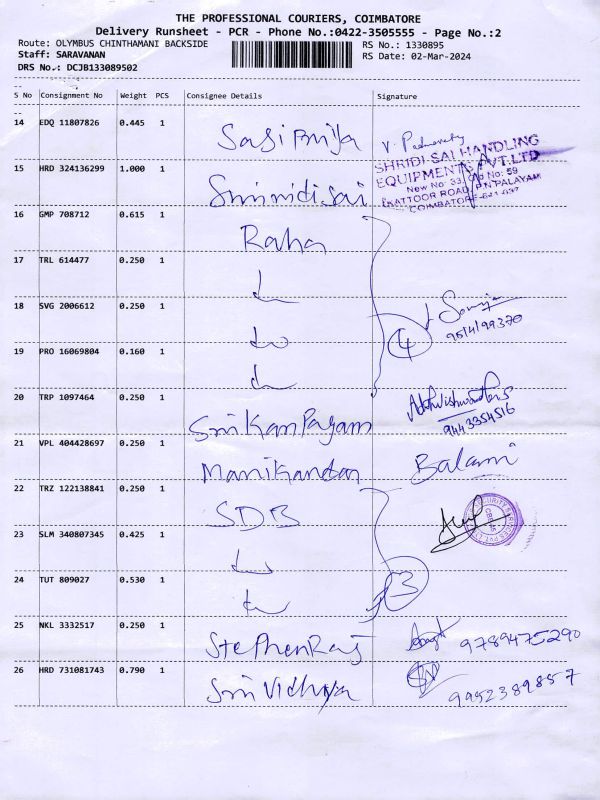 THE PROFESSIONAL COURIERS, COIMBATORE
Delivery Runsheet - PCR - Phone No.:0422-3505555 - Page No.:2
Route: OLYMBUS CHINTHAMANI BACKSIDE
RS No.: 1330895
Staff: SARAVANAN
RS Date: 02-Mar-2024
DRS No.: DCJB133089502
S No Consignment No Weight PCS Consignee Details Signature
14 EDQ 11807826 0.445 1
V. Padmavathy
15 HRD 324136299 1.000 1 Srinidi sai
SHRIDI SAI HANDLING
EQUIPMENTS PVT. LTD
New No: 33, Old No: 59
KATTOOR ROAD, P.N.PALAYAM
COIMBATORE-641 037
16 GMP 708712 0.615 1 Raha
17 TRL 614477 0.250 1
18 SVG 2006612 0.250 1
4
19 PRO 16069804 0.160 1
20 TRP 1097464 0.250 1 Sri Kanpayam
9443354516
21 VPL 404428697 0.250 1 Manikandan Balami
22 TRZ 122138841 0.250 1 SDB
23 SLM 340807345 0.425 1
24 TUT 809027 0.530 1
3
25 NKL 3332517 0.250 1 StephenRaj 9789475290
26 HRD 731081743 0.790 1 Sri Vidhya 9952389857